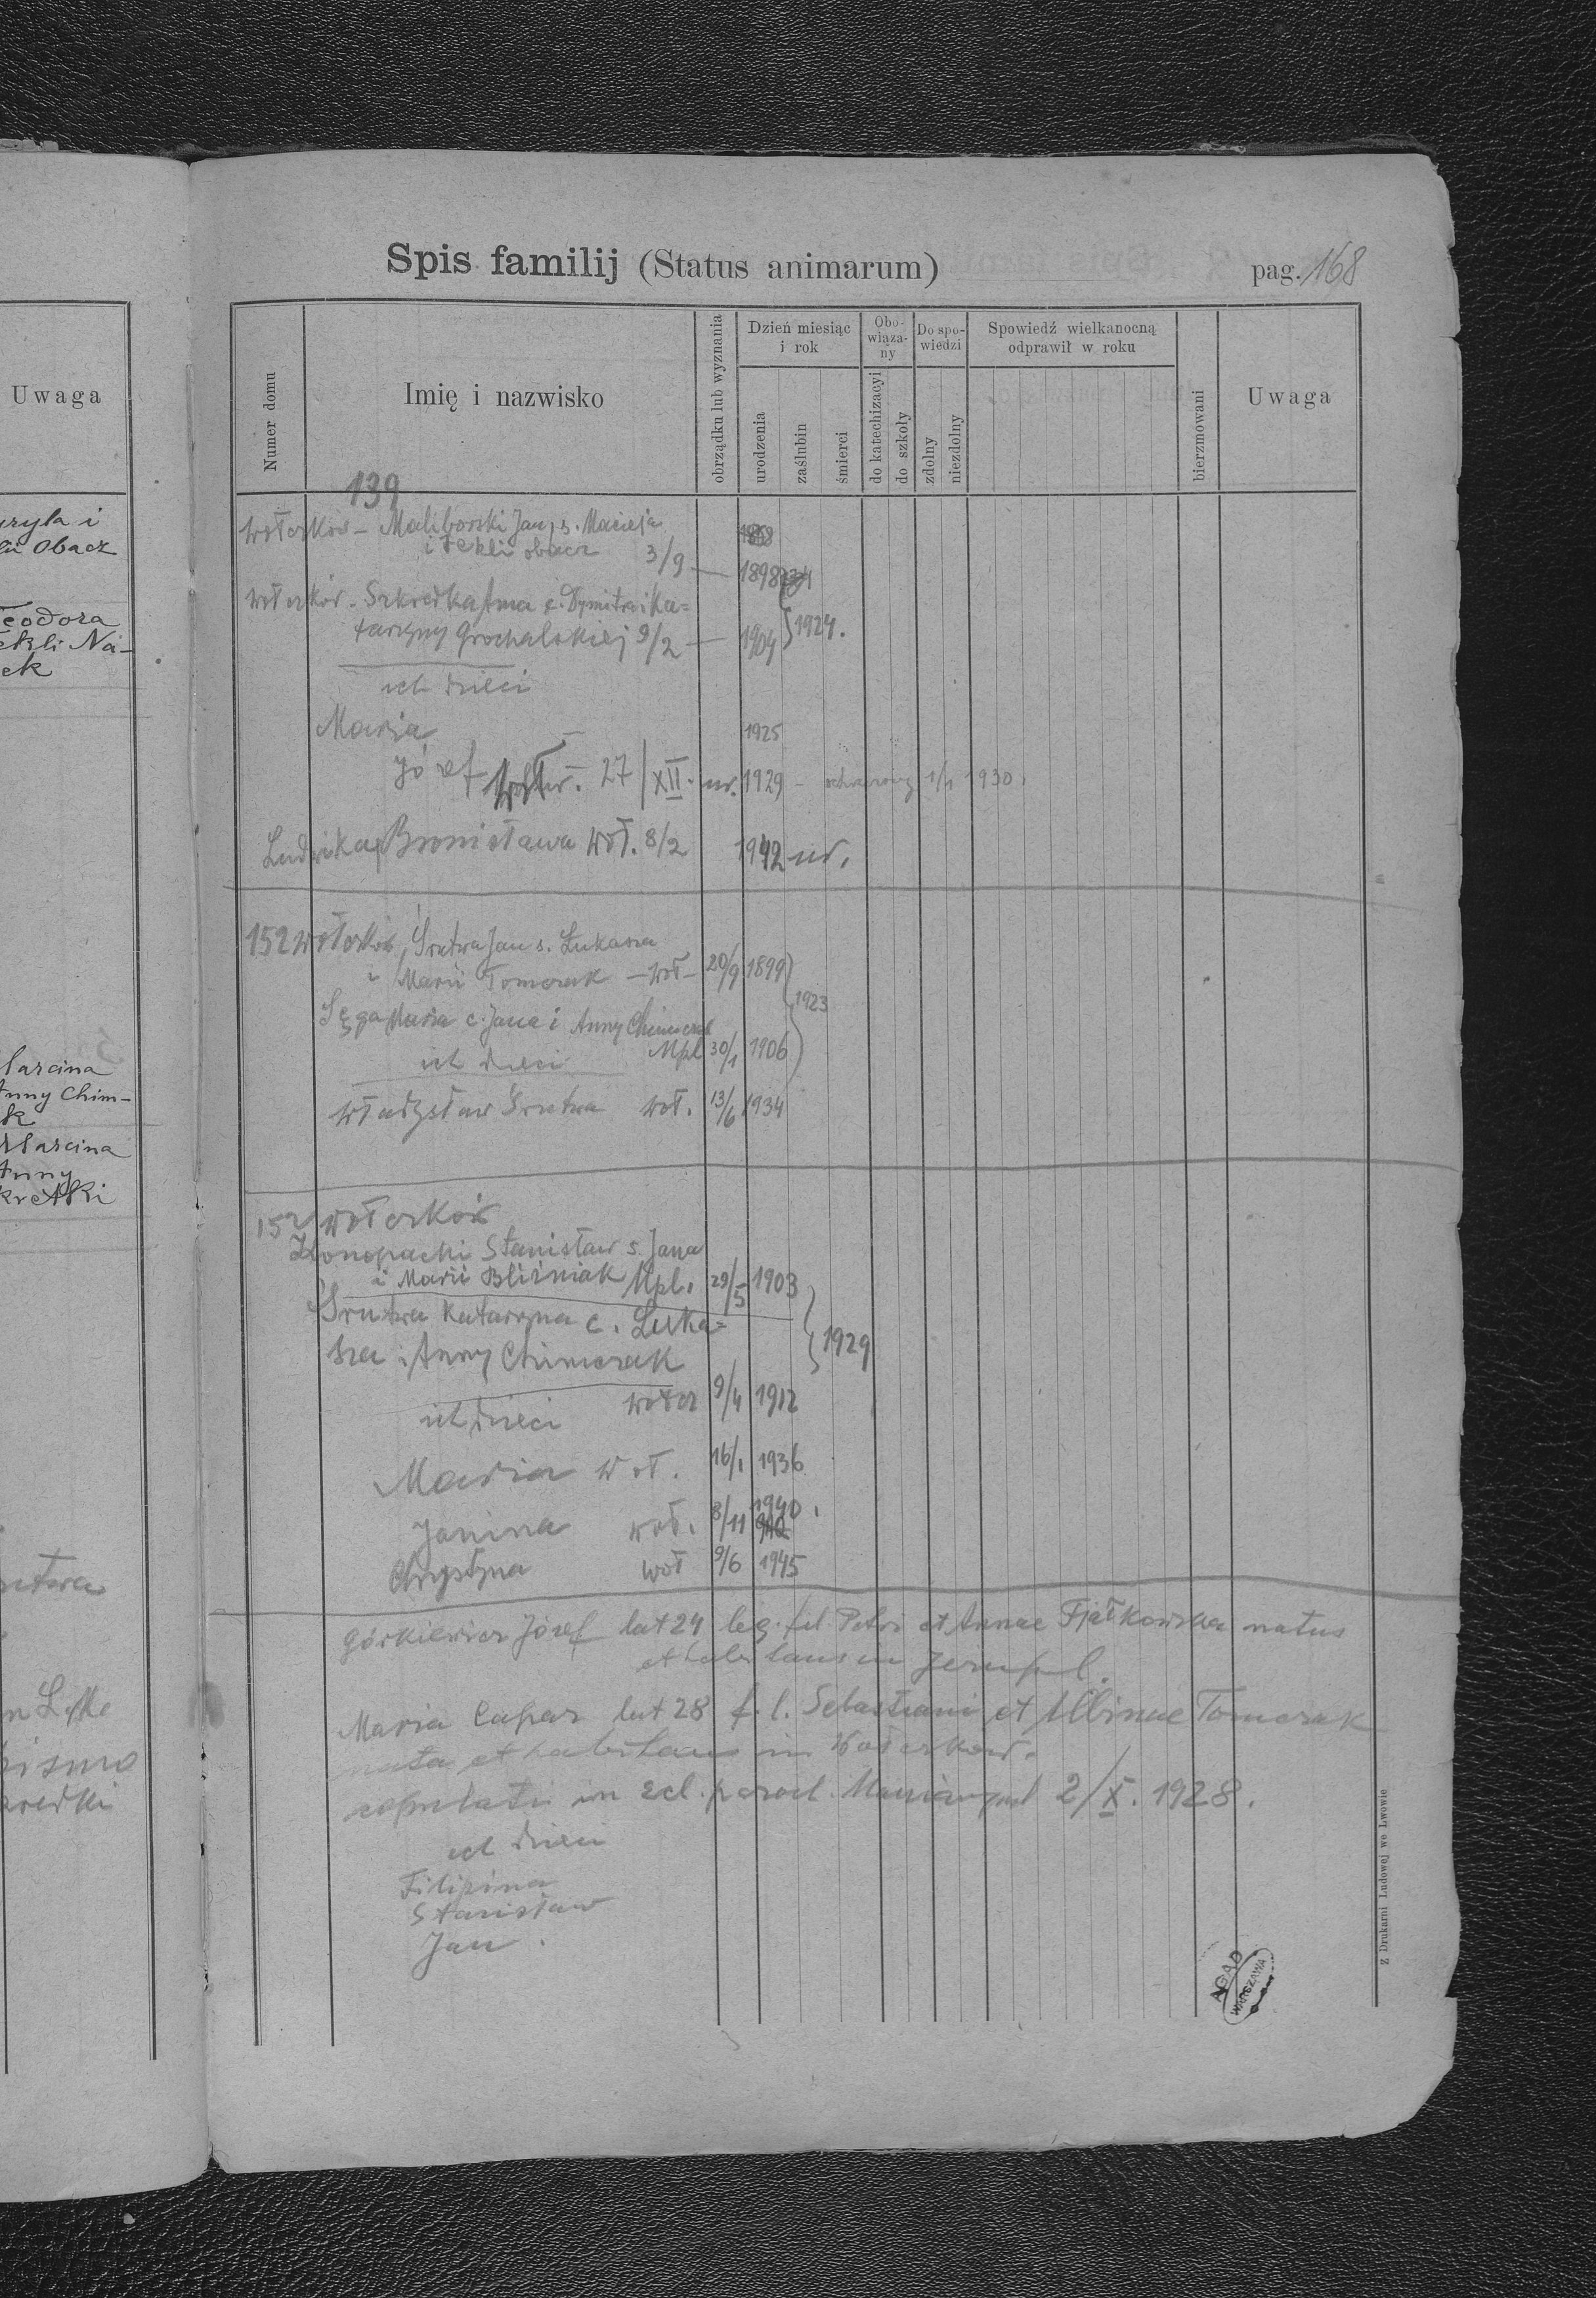 Uwaga
uryla i
Obacz
Teodora
ekli Na-
ek
Marcina
Anny Chim-
k
Marcina
Anny
Spis familij (Status animarum)
pag. 168
Numer domu
Imię i nazwisko
obrządku lub wyznania
Dzień miesiąc i rok
urodzenia
zaślubin
śmierci
Obowiąza-ny
do katechizacyi
do szkoły
Do spo-wiedzi
zdolny
niezdolny
Spowiedź wielkanocną odprawił w roku
bierzmowani
Uwaga
139
Wołczków - Maliborski Jan, s. Macieja
i Tekli Obacz 3/9 — 1898
Wołczków - Szkredka Anna c. Dymitra i Ka=
tarzyny Grochalskiej 9/2 — 1904 } 1924.
ich dzieci
Maria 1925
Józef Wołcw. 27/XII. ur. 1929 - ochrzczony 1/1 1930.
Ludwika Bronisława Woł. 8/2 1942 ur.
152 Wołczków, Srutwa Jan s. Łukasza
i Marii Tomczak - Woł - 20/9 1899 } 1923
Sęga Maria c. Jana i Anny Chimczak
ich dzieci Mpl 30/1 1906
Władysław Srutwa Woł. 13/6 1934
152 Wołczków
Konopacki Stanisław s. Jana
i Marii Bliźniak Mpl. 29/5 1903
Srutwa Katarzyna c. Łuka= } 1929
sza i Anny Chimczak
Wołcz 9/4 1912
ich dzieci
Maria Woł. 16/1 1936
Janina Woł. 8/11 1940.
Chrystyna Woł 9/6 1945
Górkiewicz Józef lat 24 leg. fil Petri et Annae Fijałkowska natus
et habitans in Jezupol.
Maria Capar lat 28 f. l. Sebastiani et Albinae Tomczak
nata et habitans in Wołczków.
copulati in ecl. paroch. Mariampol 2/X. 1928.
ich dzieci
Filipina
Stanisław
Jan.
AGAD
WARSZAWA
Z Drukarni Ludowej we Lwowie